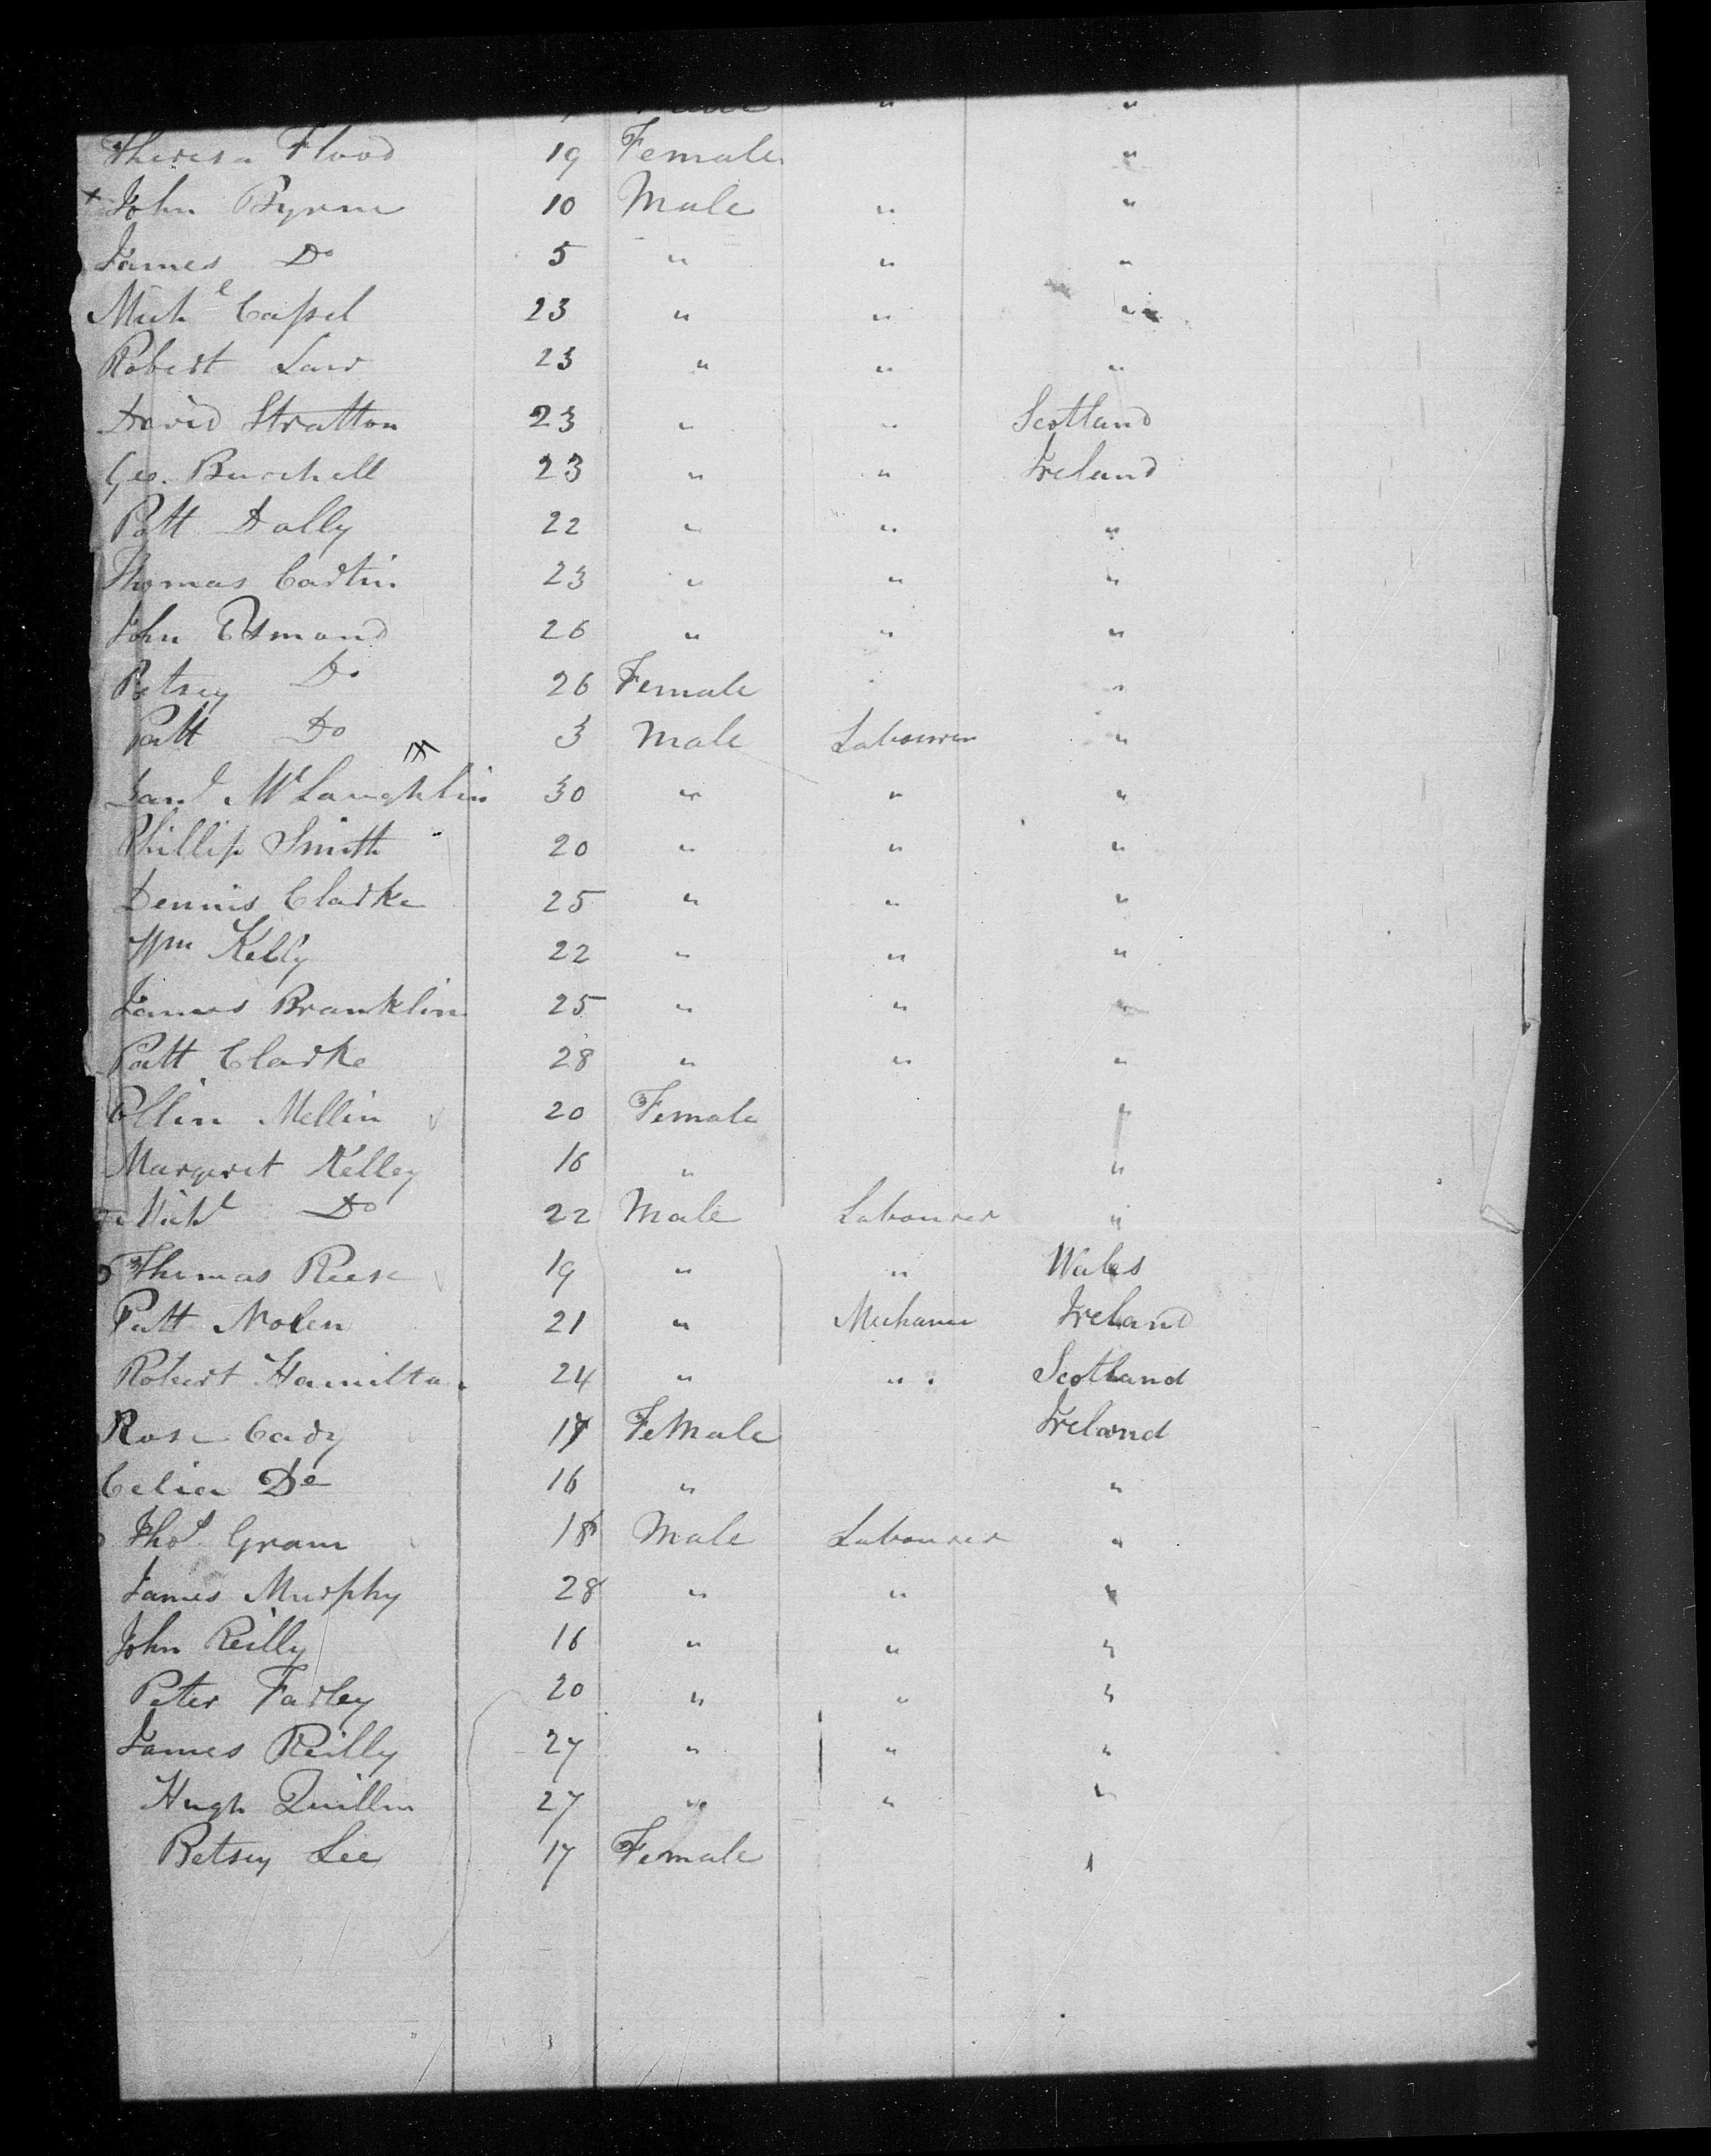 " "
Theresa Flood 19 Female "
x John Byrne 10 Male " "
James Do 5 " " "
Michl Cassel 23 " " "
Robert Law 23 " " "
David Stratton 23 " " Scotland
Geo. Burchell 23 " " Ireland
Patt Dally 22 " " "
Thomas Cartin 23 " " "
John Esmond 26 " " "
Betsey Do 26 Female "
Patt Do 3 Male Labourer "
McLaughlin 30 " " "
Phillip Smith 20 " " "
Dennis Clarke 25 " " "
Wm Kelly 22 " " "
James Branklin 25 " " "
Patt Clarke 28 " " "
Mellin 20 Female "
Margeret Kelley 16 " "
Michl Do 22 Male Labourer "
Thomas Reese 19 " " Wales
Patt Nolen 21 " Mechanic Ireland
Robert Hamilton 24 " " Scotland
Rose Cady 17 FeMale Ireland
Celia Do 16 " "
Thos Gram 18 Male Labourer "
James Murphy 28 " " "
John Reilly 16 " " "
Peter Farley 20 " " "
James Reilly 27 " " "
Hugh Quillin 27 " " "
Betsey Lee 17 Female "